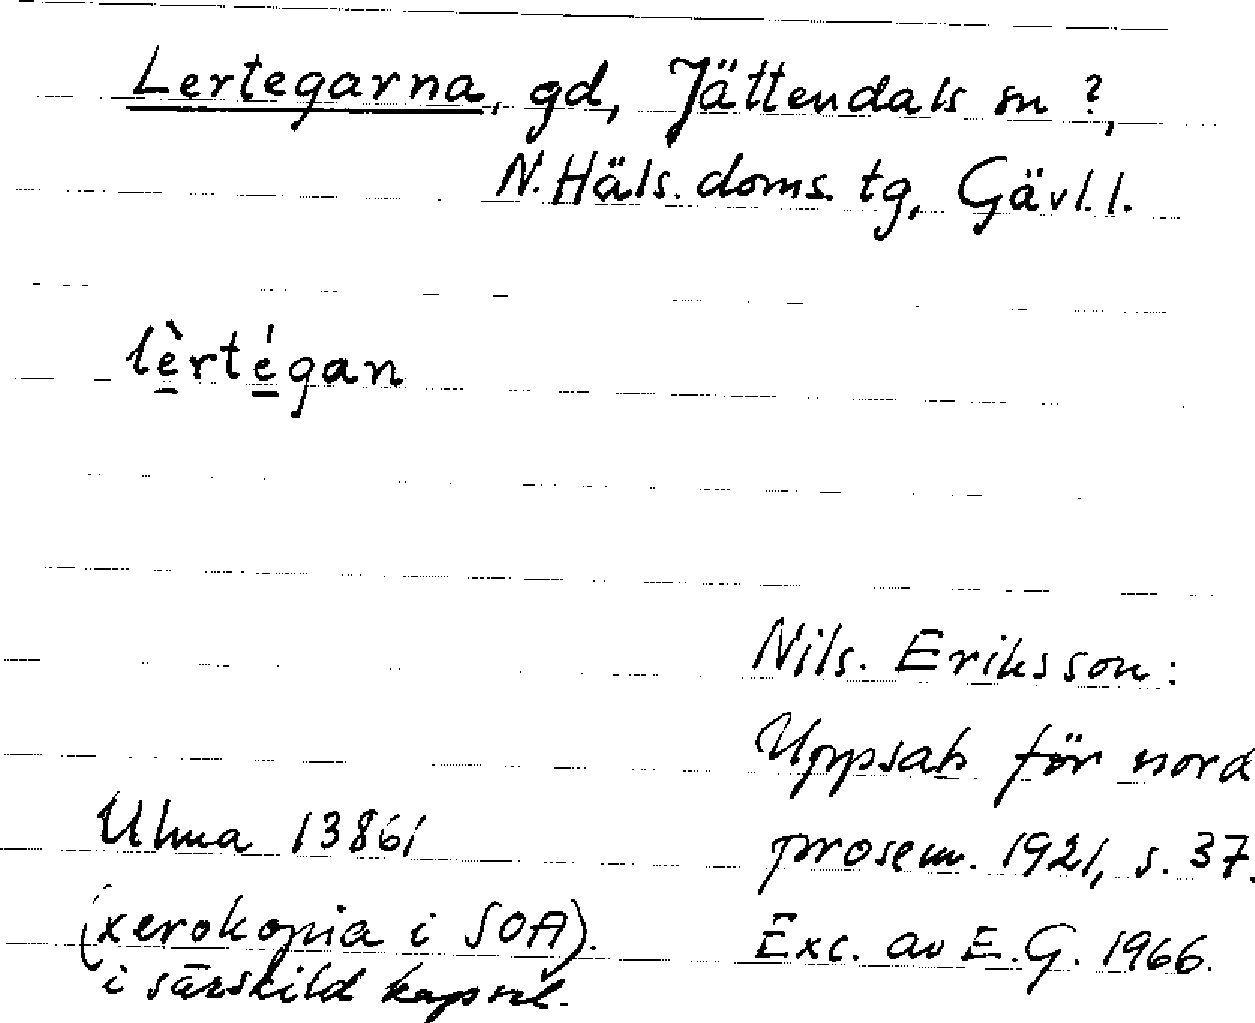 Lertegarna, gd, Jättendals sn ?,
N. Häls. doms. tg, Gävl. l.
lèrtégan
Nils. Eriksson:
Uppsats för nord
prosem. 1921, s. 37.
Ulma 13861
(xerokopia i SOA).
i särskild kapsel.
Exc. av E.G. 1966.